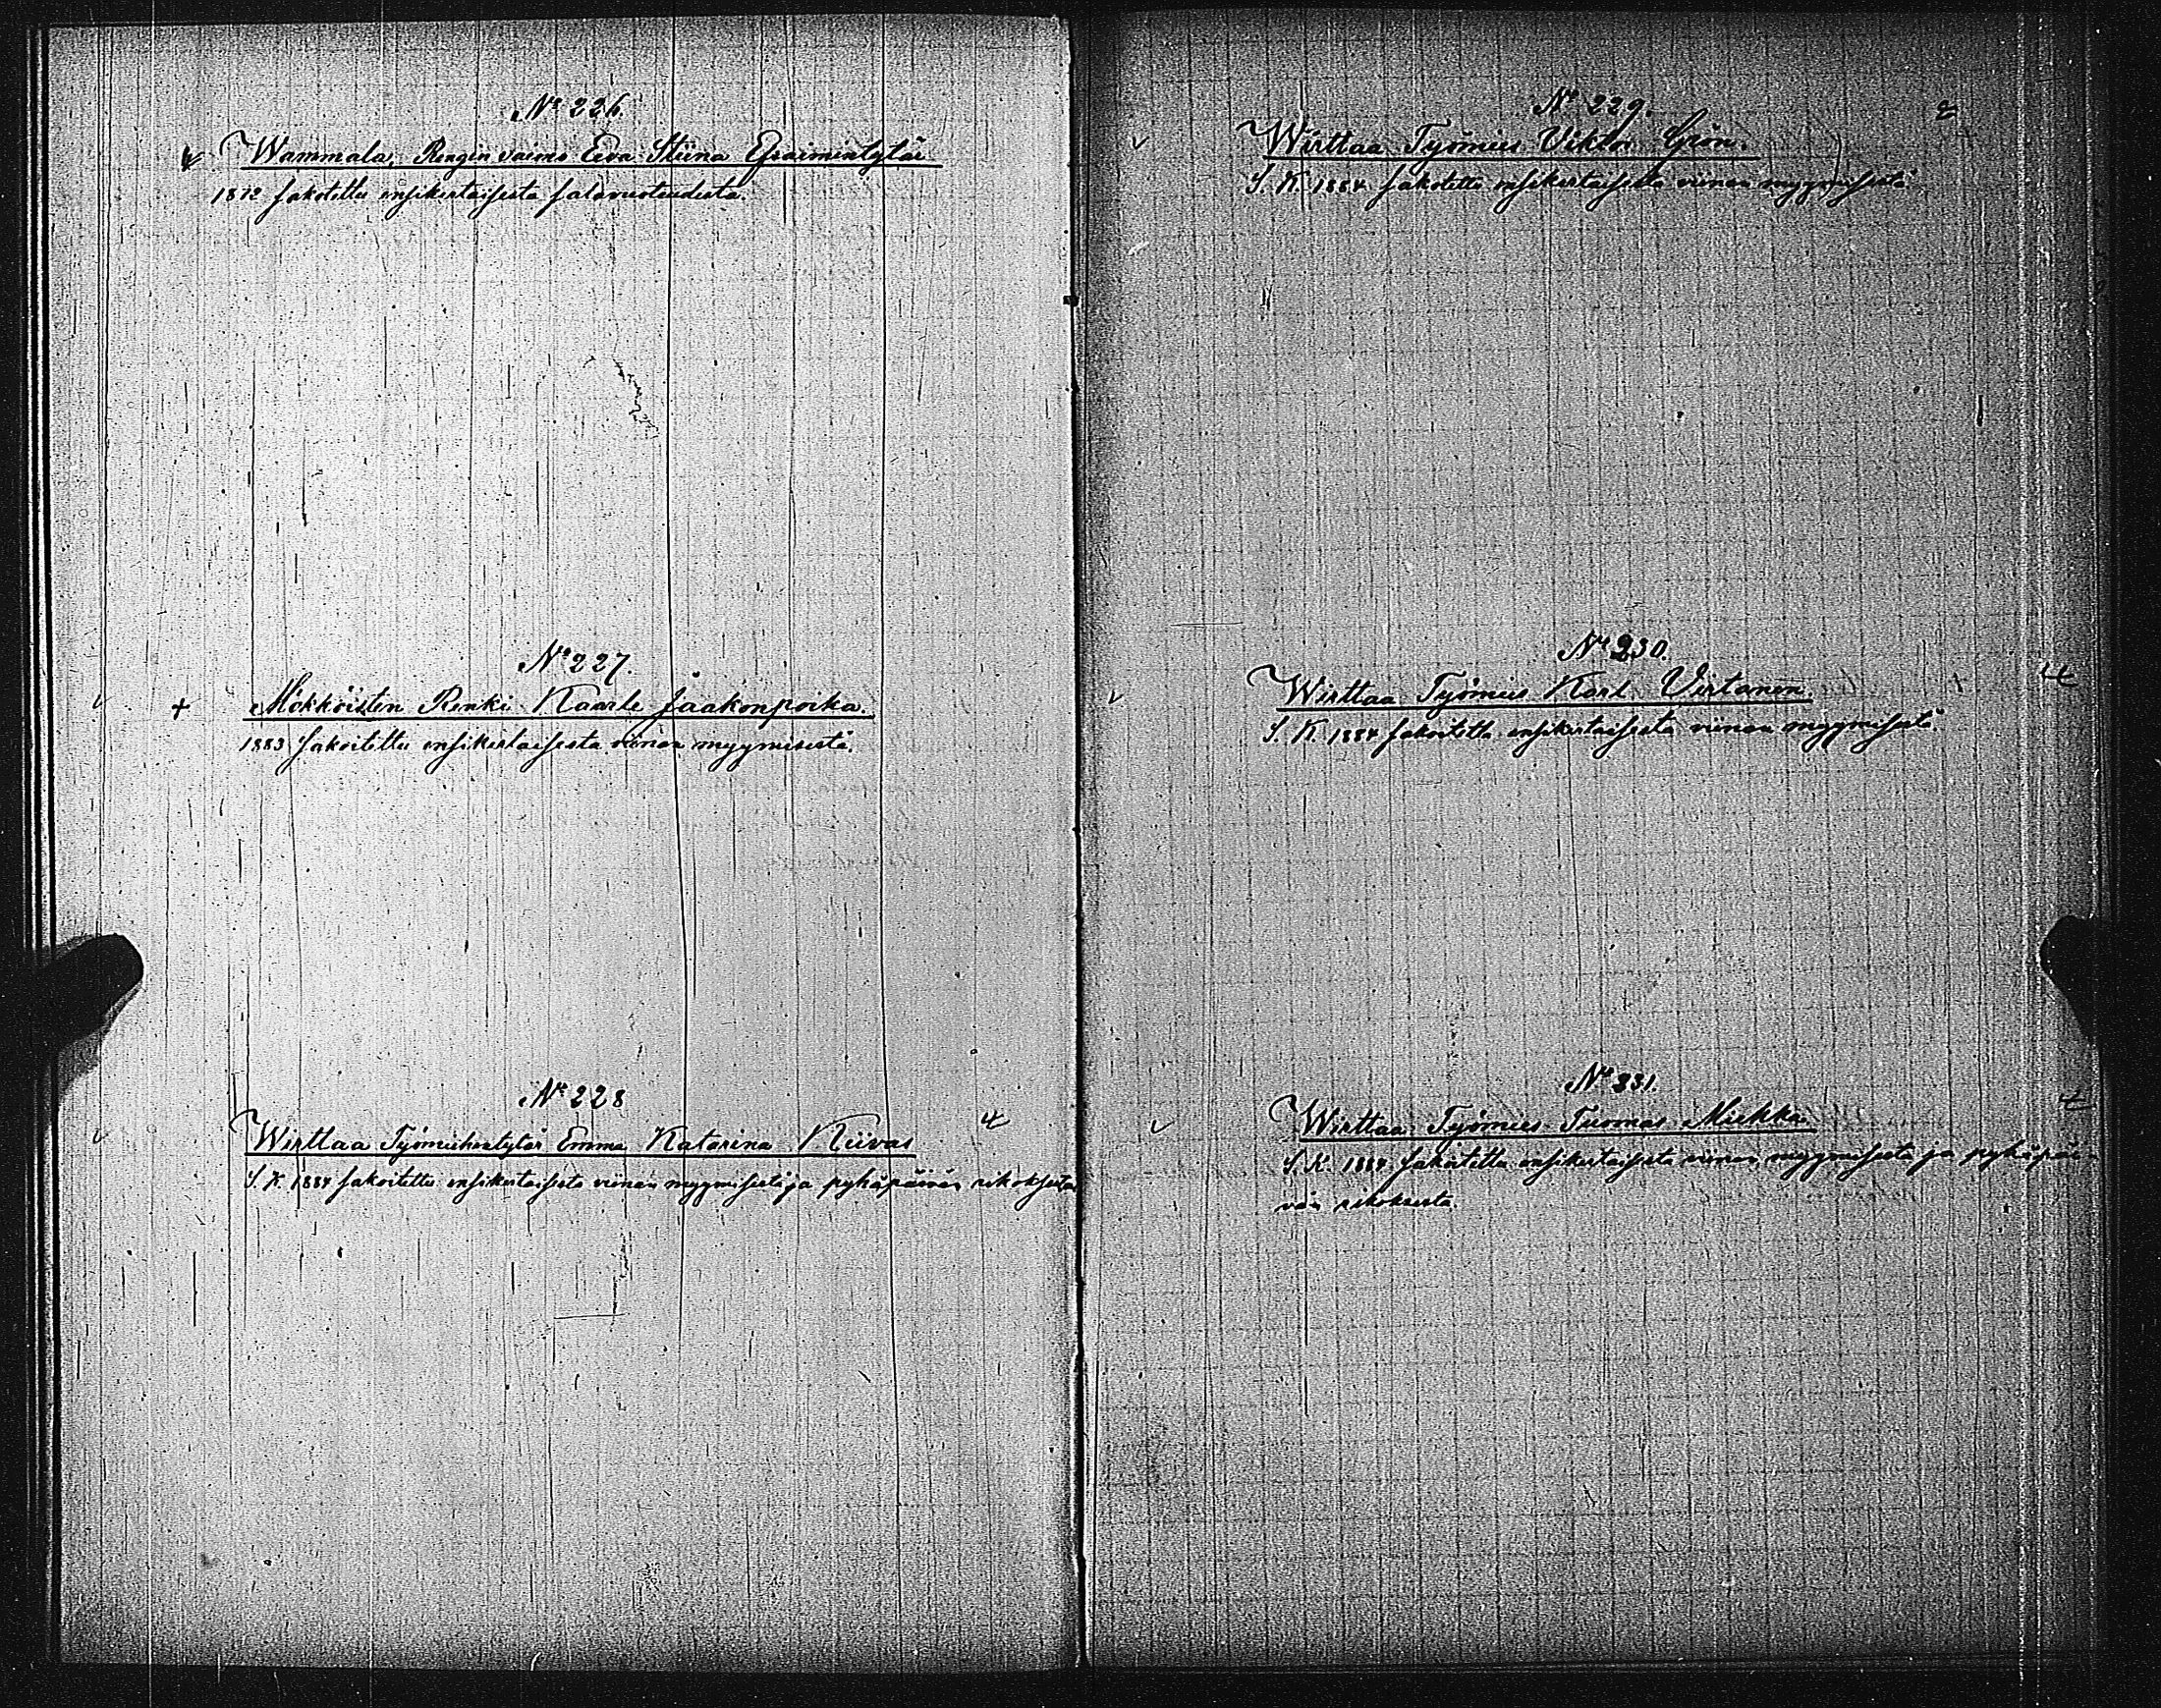 No 226.
Wammala, Rengin vaimo Eeva Stiina Efraimintytär
1872 sakotettu ensikertaisesta salavuoteudesta.
No 227.
Mökköisten Renki Kaarle Jaakonpoika.
1883 sakoitettu ensikertaisesta viinan myymisestä.
No 228
Wirttaa Työmiehentytär Emma Katarina Kiivas
S. K. 1884 sakoitettu ensikertaisesta viinan myymisestä ja pyhäpäivän rikoksesta
No 229.
Wirttaa Työmies Viktor Grön.
S. K. 1884 sakotettu ensikertaisesta viinan myymisestä
No 230.
Wirttaa Työmies Karl Virtanen.
S. K. 1884 sakoitettu ensikertaisesta viinan myymisestä.
No 231.
Wirttaa Työmies Tuomas Miekka.
S. K. 1884 sakoitettu ensikertaisesta viinan myymisestä ja pyhäpäi-
vän rikoksesta.